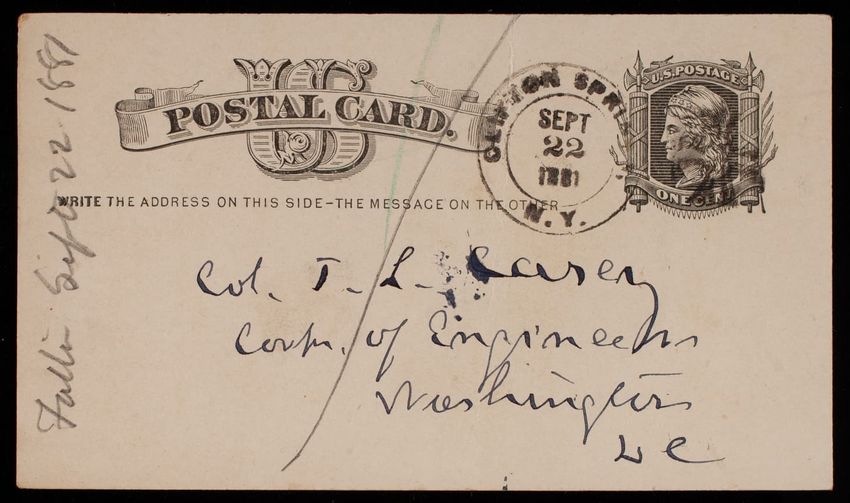 US
POSTAL CARD.
WRITE THE ADDRESS ON THIS SIDE-THE MESSAGE ON THE OTHER
CLIFTON SPRIN
SEPT
22
1881
N.Y.
U.S. POSTAGE
ONE CENT
Col. T. L. Casey
Corps. of Engineers
Washington
DC
Sept 22 1881